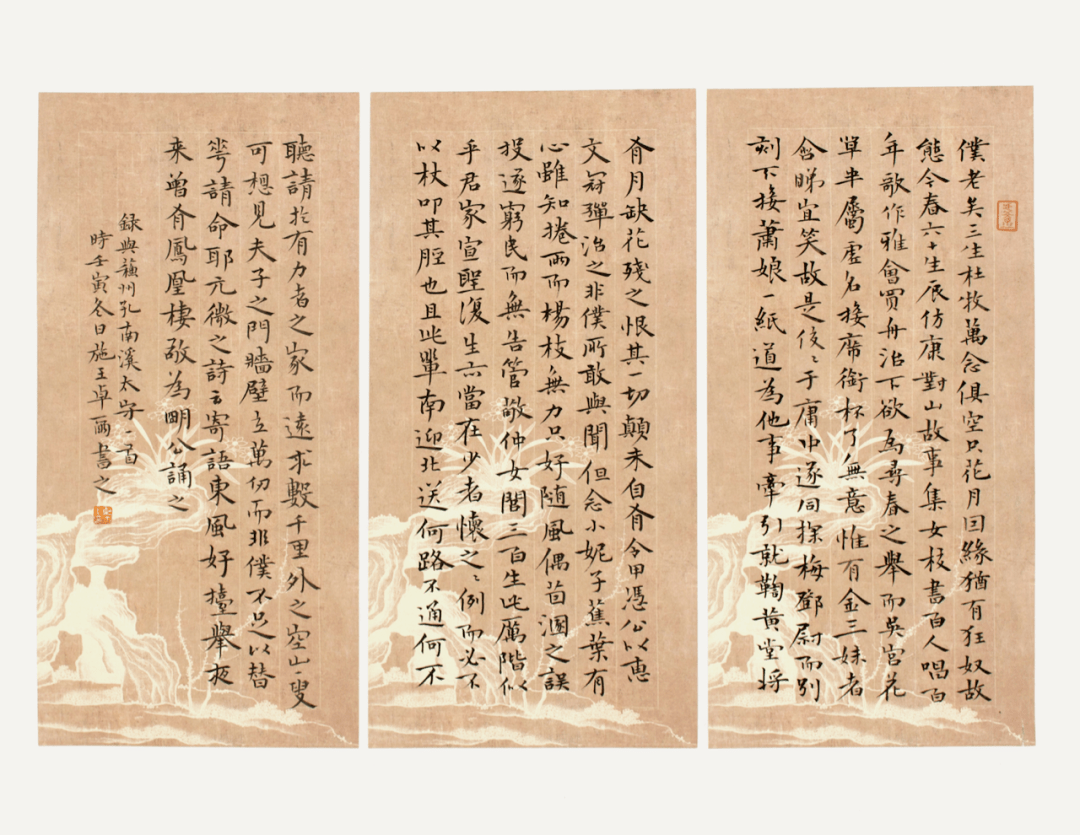 僕老矣三生杜牧萬念俱空只花月因緣猶有狂奴故
態今春六十生辰仿康對山故事集女校書百人唱百
年歌作雅會買舟治下欲為尋春之舉而吳宮花
草半屬虛名接席銜杯了無意惟有金三妹者
含睇宜笑故是佼〻于庸中遂同探梅鄧尉而別
刻下接蕭娘一紙道為他事牽引就鞫黃堂將
有月缺花殘之恨其一切顛末自有令甲憑公以惠
文冠彈治之非僕所敢與聞但念小妮子蕉葉有
心雖知捲雨而楊枝無力只好隨風偶茵溷之誤
投遂窮民而無告管敬仲女閭三百生此厲階似
乎君家宣聖復生亦當在少者懷之〻例而必不
以杖叩其脛也且此輩南迎北送何路不通何不
聽請於有力者之家而遠求數千里外之空山一叟
可想見夫子之門牆壁立萬仞而非僕不足以替
花請命耶元微之詩云寄語東風好擡舉夜
來曾有鳳凰棲敬為明公誦之
錄與蘇州孔南溪太守一首
時壬寅冬日施王卓兩書之